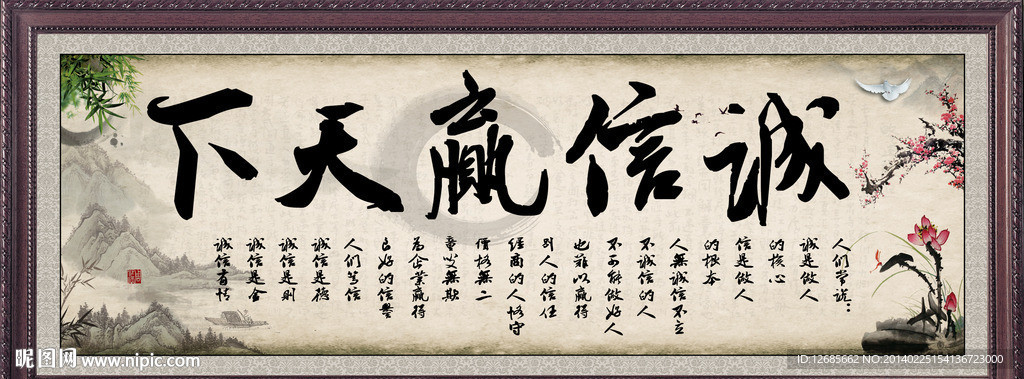 誠信贏天下
人们常说：
誠是做人
的核心
信是做人
的根本
人無誠信不立
不誠信的人
不可能做好人
也難以贏得
别人的信任
經商的人恪守
價格無二
童叟無欺
為企業贏得
良好的信譽
人们笃信
誠信是德
誠信是則
誠信是金
誠信有情
昵图网 www.nipic.com
ID:12685662 NO:20140225154136723000